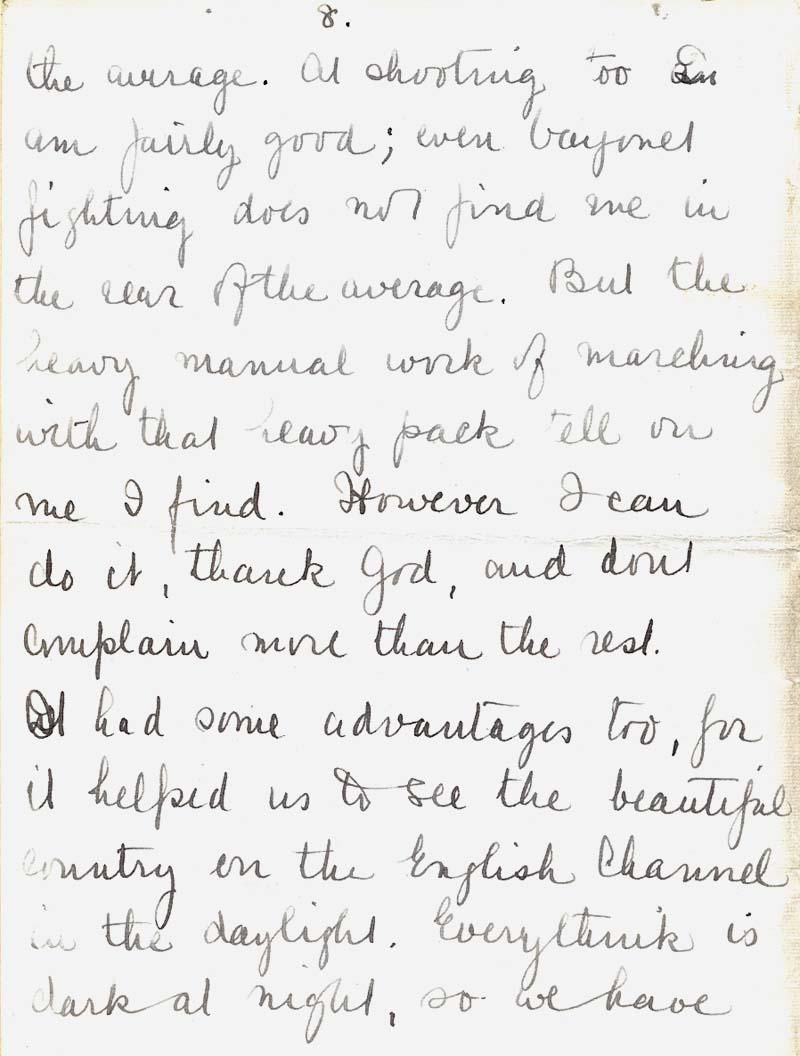 8.
the average. At shooting too I
am fairly good; even bayonet
fighting does not find me in
the rear of the average. But the
heavy manual work of marching
with that heavy pack tell on
me I find. However I can
do it, thank God, and dont
complain more than the rest.
It had some advantages too, for
it helped us to see the beautiful
country on the English Channel
in the daylight. Everythink is
dark at night, so we have